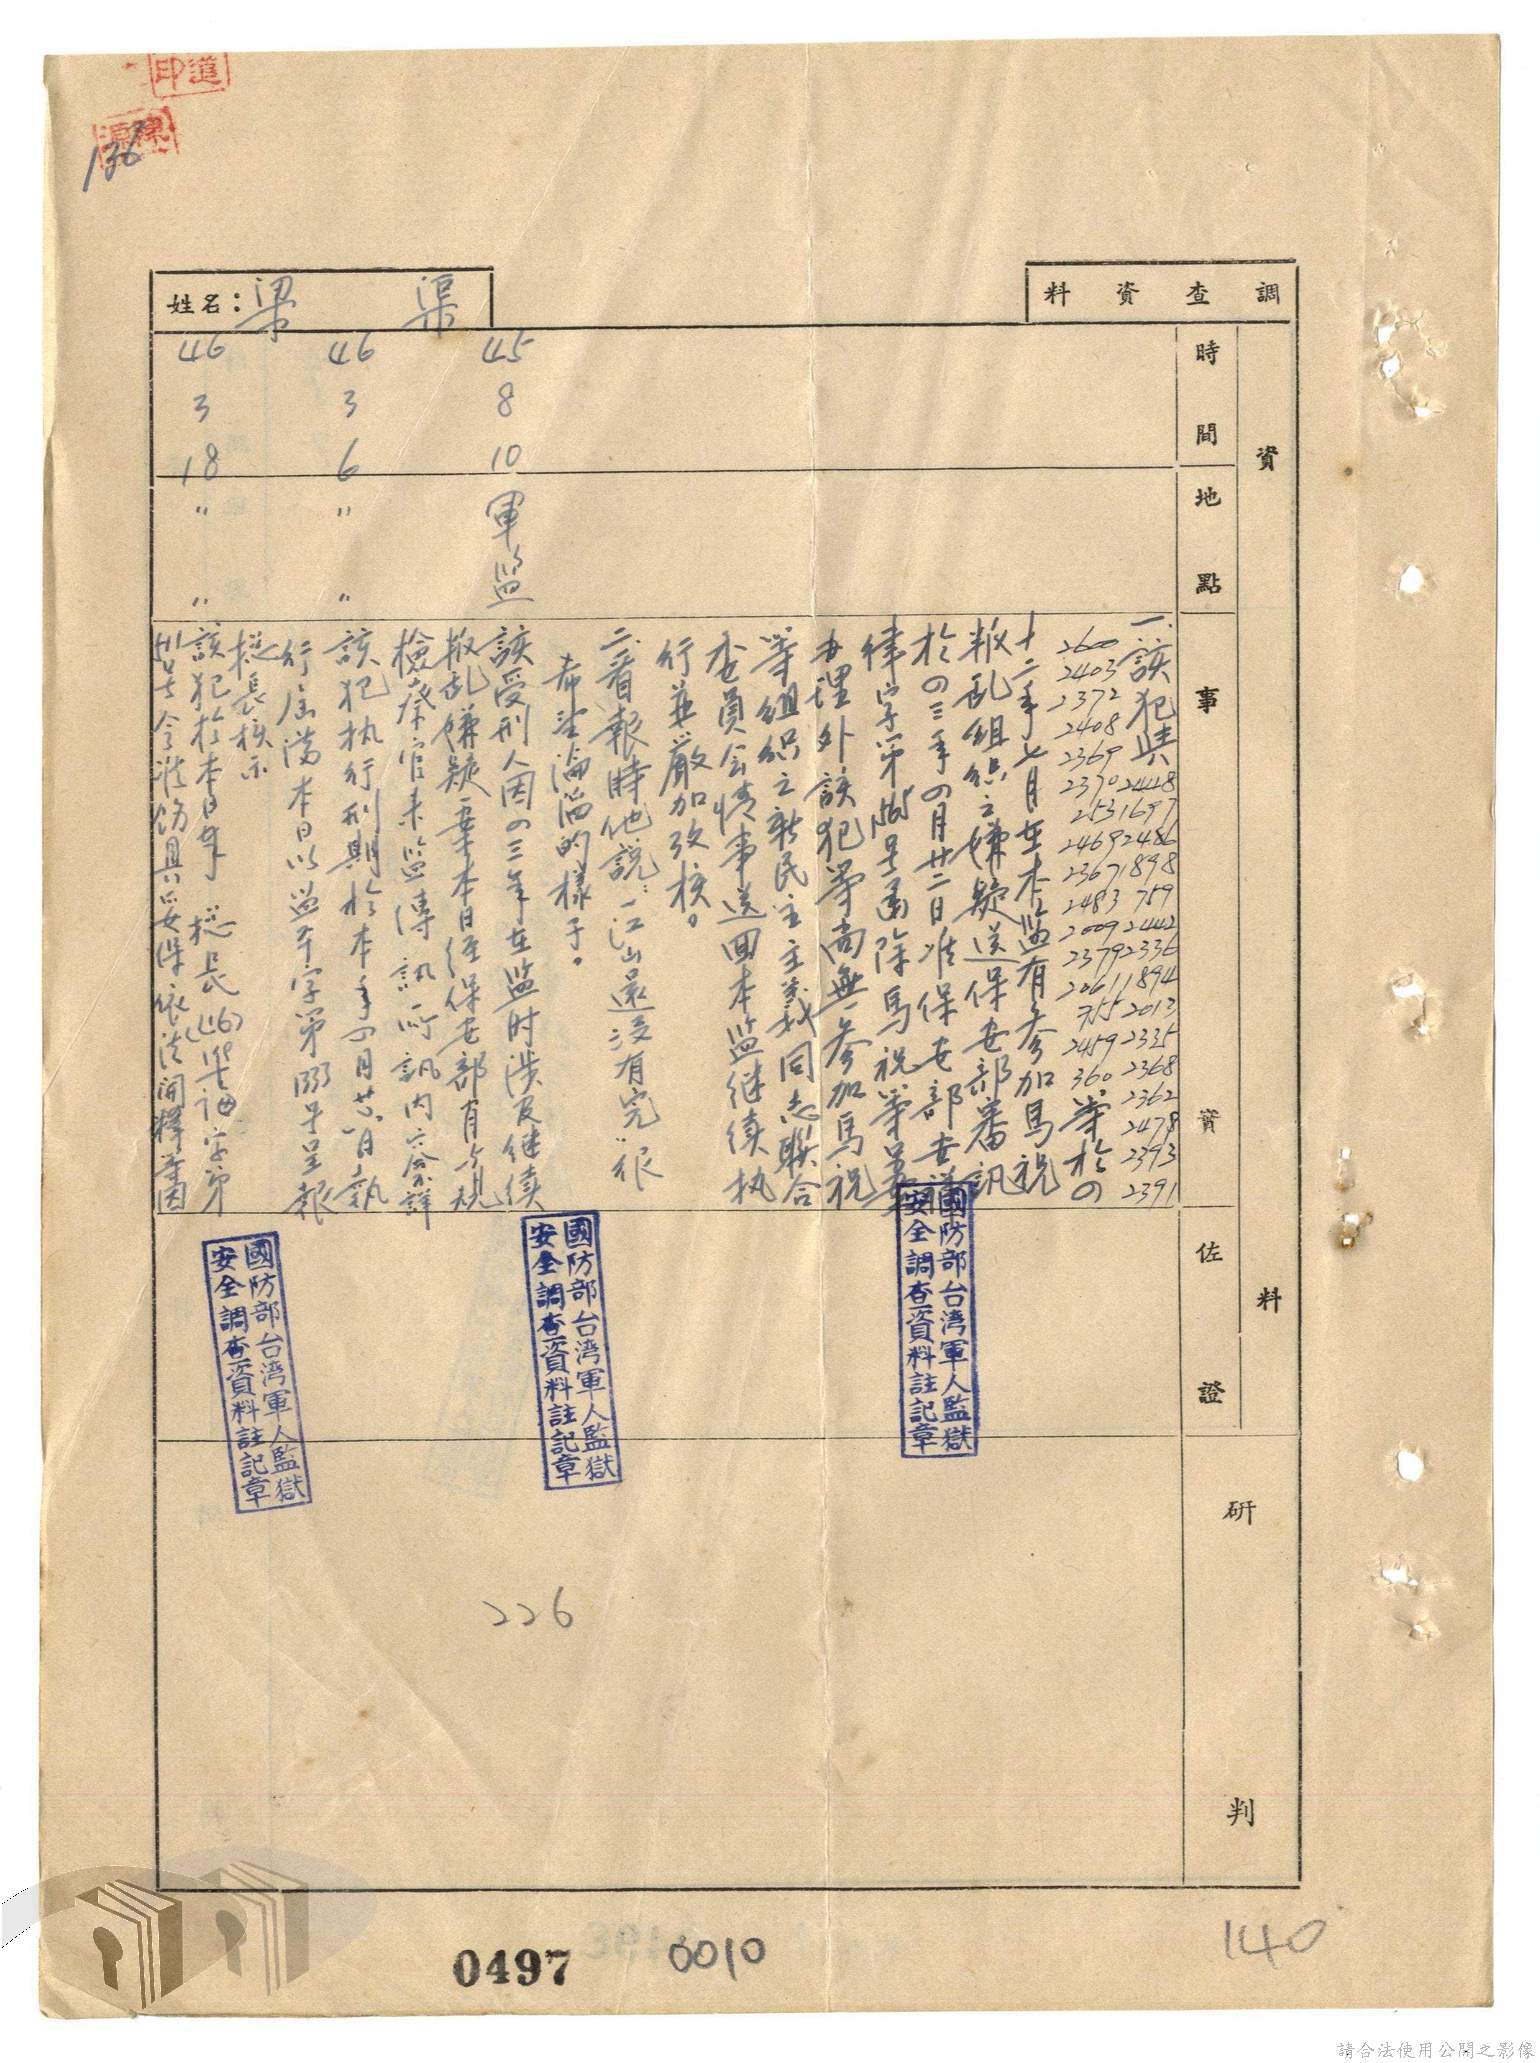 調查資料
姓名：梁 渠
資料
時間
地點
事實
佐證
研判
45 8 10
軍監
46 3 6
〃 〃
46 3 18
〃 〃
一、該犯與
2448 1697 2486 1898 759 2442 2336 1894 2013 2335 2368 2362 2478 2393 2391
2600 2403 2372 2408 2369 2370 253 2469 2367 2483 2009 2379 2061 755 2459 360 等於四
十二年七月在本監有參加馬祝
叛亂組織之嫌疑送保安部審訊
於四三年四月廿二日准保安部
律字第 號函除馬祝等
办理外該犯等尚無參加馬祝
等組織之新民主主義同志聯合
委員会情事送回本監继續执
行並嚴加攷核。
二、看報時他說：江山還没有完很
希望淪陷的樣子。
該受刑人因四三年在監时涉及继續
叛乱嫌疑一案本日經保安部
檢察官来監傳訊所訊内容詳
該犯执行刑期於本年四月廿 日執
行屆滿本日以監 字第 号呈報
核示
該犯於本日奉 (46) 字第
号令准飭具 安保依法開釋
國防部台湾軍人監獄
安全調查資料註記章
國防部台湾軍人監獄
安全調查資料註記章
國防部台湾軍人監獄
安全調查資料註記章
136
226
0497
0010
140
請合法使用公開之影像